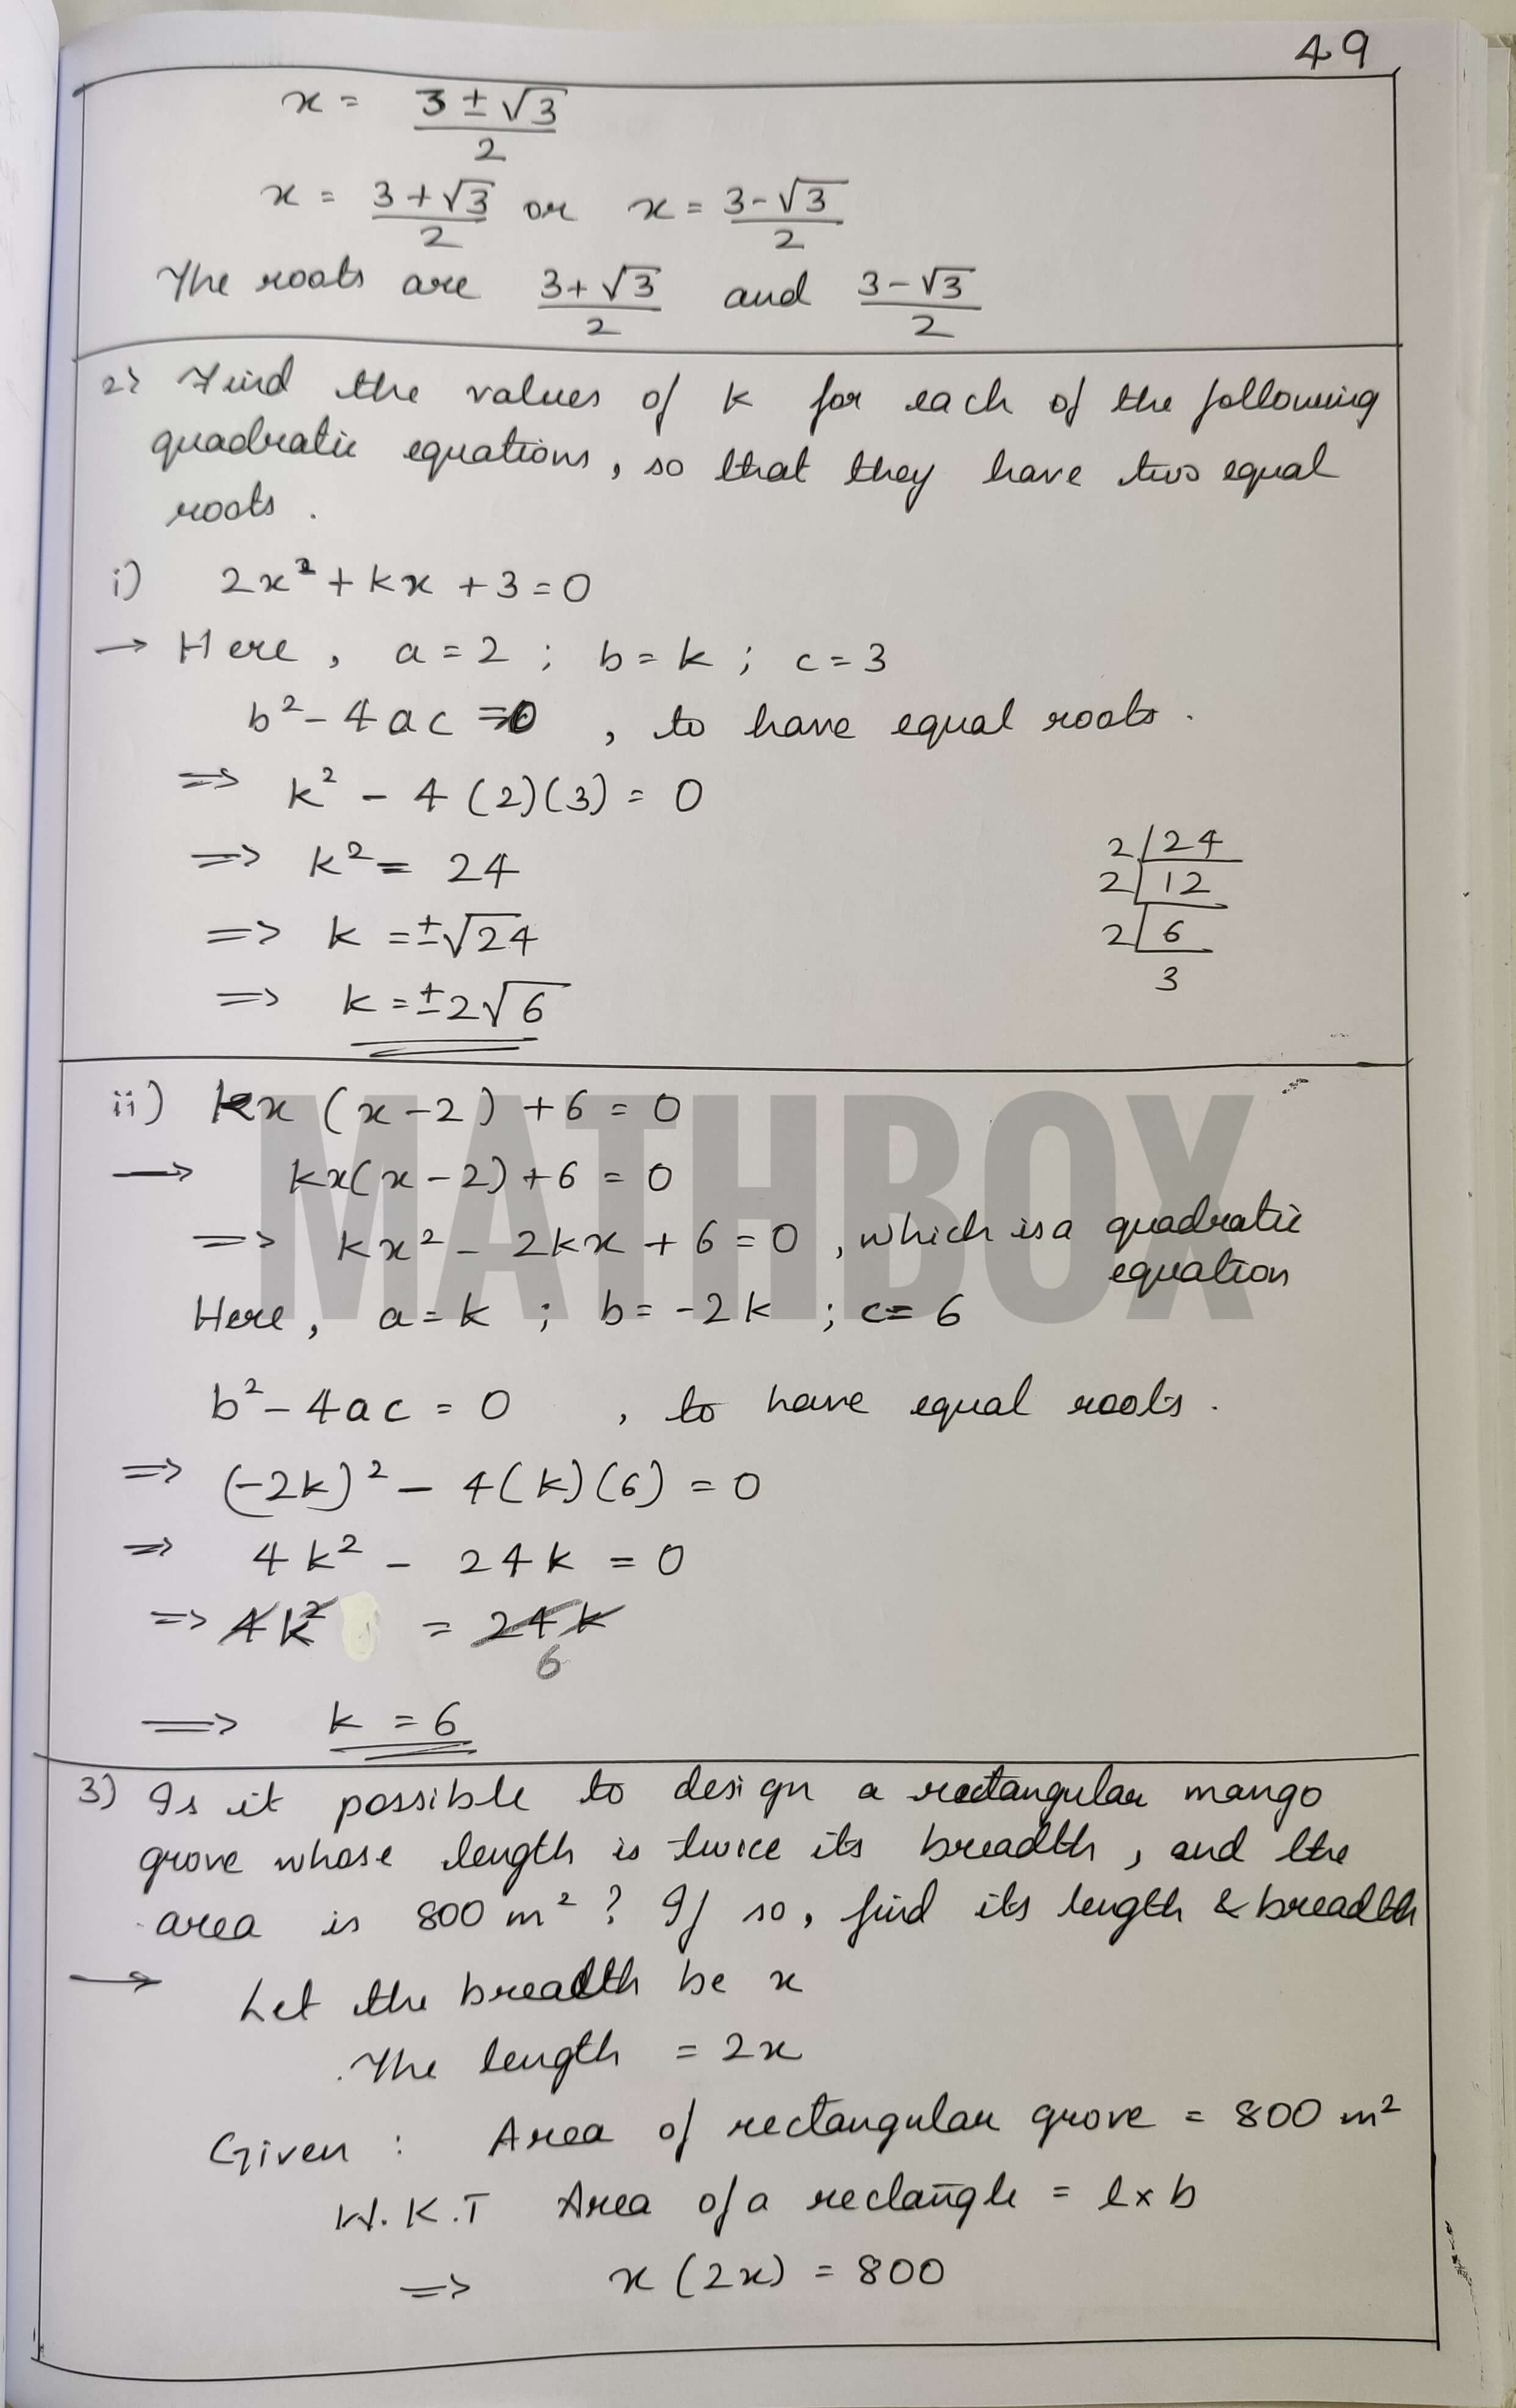 49
x = 3 ± √3 / 2
x = 3+√3 / 2 or x = 3-√3 / 2
The roots are 3+√3 / 2 and 3-√3 / 2
2) Find the values of k for each of the following
quadratic equations, so that they have two equal
roots.
i) 2x² + kx + 3 = 0
→ Here, a = 2 ; b = k ; c = 3
b² - 4ac = 0 , to have equal roots.
⇒ k² - 4(2)(3) = 0
⇒ k² = 24
⇒ k = ±√24
⇒ k = ±2√6
2 | 24
2 | 12
2 | 6
3
ii) kx (x-2) + 6 = 0
→ kx(x-2)+6 = 0
⇒ kx² - 2kx + 6 = 0 , which is a quadratic
equation
MATHBOX
Here, a = k ; b = -2k ; c = 6
b² - 4ac = 0 , to have equal roots.
⇒ (-2k)² - 4(k)(6) = 0
⇒ 4k² - 24k = 0
⇒ 4k² = 24k
6
⇒ k = 6
3) Is it possible to design a rectangular mango
grove whose length is twice its breadth, and the
area is 800 m² ? If so, find its length & breadth
→ Let the breadth be x
The length = 2x
Given : Area of rectangular grove = 800 m²
W.K.T Area of a rectangle = l x b
⇒ x (2x) = 800